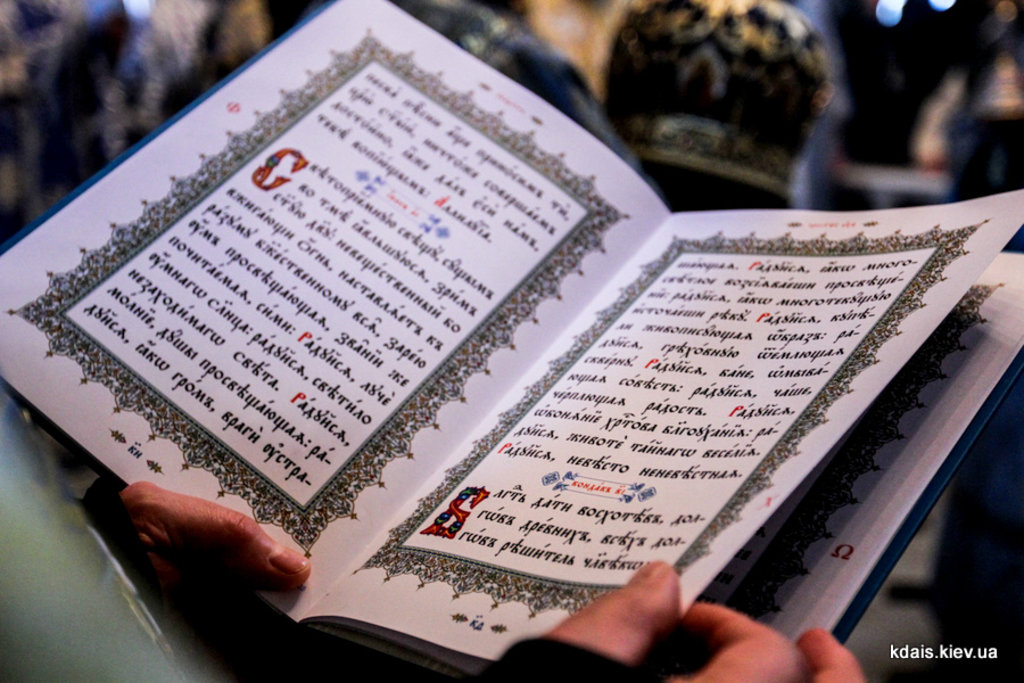 Ф
царю ст҃ы́й, ничто́же соверша́емъ
досто́йно, ꙗ҆̀же да́лъ є҆сѝ на́мъ,
тебѣ̀ вопїю́щымъ: А҆ллилꙋ́їа.
Свѣтопрїе́мнꙋю свѣщꙋ̀, сꙋ́щымъ
во тьмѣ̀ ꙗ҆́вльшꙋюсѧ, зри́мъ
ст҃ꙋ́ю дв҃ꙋ: невеще́ственный бо
вжига́ющи ѻ҆́гнь, наставлѧ́етъ къ
ра́зꙋмꙋ бж҃е́ственномꙋ всѧ̑, заре́ю
ᲂу҆́мъ просвѣща́ющаѧ, зва́нїй же
почита́емаѧ, си́ми: Ра́дꙋйсѧ, лꙋчѐ
ᲂу҆́мнагѡ сл҃нца: ра́дꙋйсѧ, свѣти́ло
незаходи́магѡ свѣ́та. Ра́дꙋйсѧ,
мо́лнїе, дꙋ́шы просвѣща́ющаѧ: ра́-
дꙋйсѧ, ꙗ҆́кѡ гро́мъ, врагѝ ᲂу҆стра-
к҃и
ша́ющаѧ. Ра́дꙋйсѧ, ꙗ҆́кѡ много-
свѣ́тлое возсїѧва́еши просвѣще́-
нїе: ра́дꙋйсѧ, ꙗ҆́кѡ многотекꙋ́щꙋю
источа́еши рѣкꙋ̀. Ра́дꙋйсѧ, кꙋпѣ́-
ли живопи́сꙋющаѧ ѡ҆́бразъ: ра́-
дꙋйсѧ, грѣхо́внꙋю ѿе́млющаѧ
скве́рнꙋ. Ра́дꙋйсѧ, ба́не, ѡ҆мыва́-
ющаѧ со́вѣсть: ра́дꙋйсѧ, ча́ше,
че́рплющаѧ ра́дость. Ра́дꙋйсѧ,
ѡ҆бонѧ́нїе хрⷭ҇то́ва бл҃гоꙋха́нїѧ: ра́-
дꙋйсѧ, животѐ та́йнагѡ весе́лїѧ.
Ра́дꙋйсѧ, невѣ́сто неневѣ́стнаѧ.
Конда́къ в҃і
Бл҃года́ть да́ти восхотѣ́въ, дол-
гѡ́въ дре́внихъ, всѣ́хъ дол-
гѡ́въ рѣши́тель человѣ́кѡмъ
к҃д
Х
Ѡ
kdais.kiev.ua